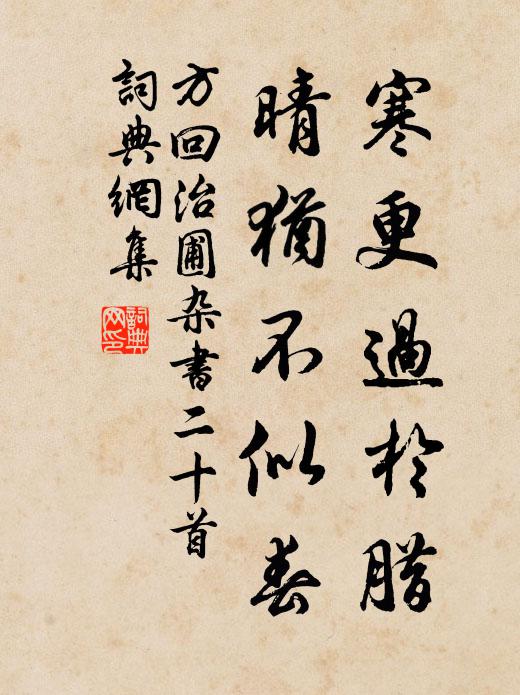 寒更過於腊
晴猶不似春
方回治圃杂書二十首
詞典網集
詞典网印